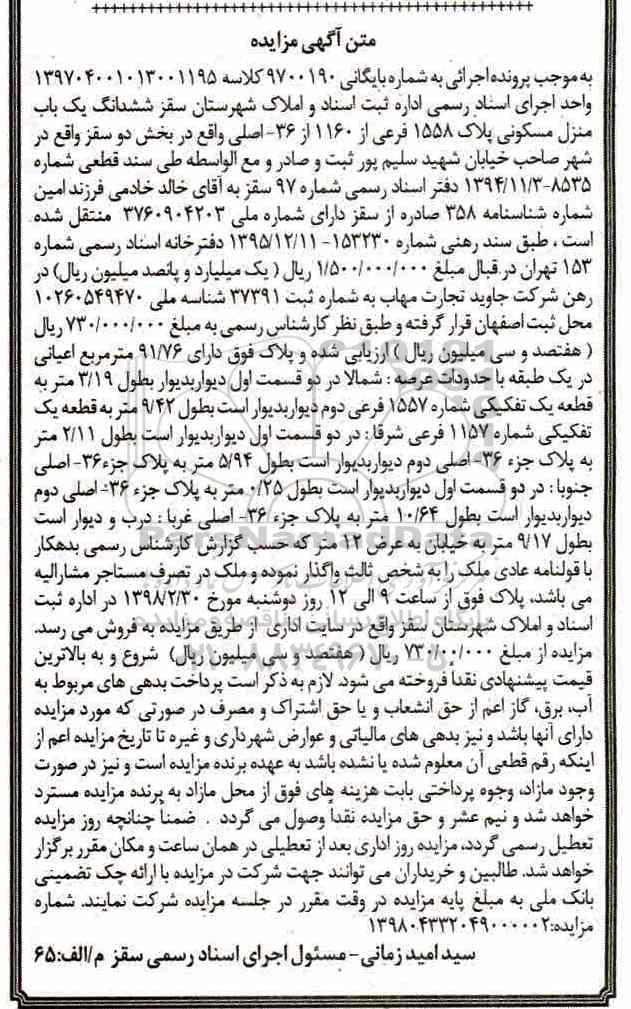 متن آگهی مزایده
به موجب پرونده اجرائی به شماره بایگانی ۹۷۰۰۱۹۰ کلاسه ۱۳۹۷۰۴۰۰۱۰۱۳۰۰۱۱۹۵
واحد اجرای اسناد رسمی اداره ثبت اسناد و املاک شهرستان سقز ششدانگ یک باب
منزل مسکونی پلاک ۱۵۵۸ فرعی از ۱۱۶۰ از ۳۶- اصلی واقع در بخش دو سقز واقع در
شهر صاحب خیابان شهید سلیم پور ثبت و صادر و مع الواسطه طی سند قطعی شماره
۸۵۳۵-۱۳۹۴/۱۱/۳ دفتر اسناد رسمی شماره ۹۷ سقز به آقای خالد خادمی فرزند امین
شماره شناسنامه ۳۵۸ صادره از سقز دارای شماره ملی ۳۷۶۰۹۰۴۲۰۳ منتقل شده
است ، طبق سند رهنی شماره ۱۵۳۲۳۰- ۱۳۹۵/۱۲/۱۱ دفترخانه اسناد رسمی شماره
۱۵۳ تهران در قبال مبلغ ۱/۵۰۰/۰۰۰/۰۰۰ ریال ( یک میلیارد و پانصد میلیون ریال) در
رهن شرکت جاوید تجارت مهاب به شماره ثبت ۳۷۳۹۱ شناسه ملی ۱۰۲۶۰۵۴۹۴۷۰
محل ثبت اصفهان قرار گرفته و طبق نظر کارشناس رسمی به مبلغ ۷۳۰/۰۰۰/۰۰۰ ریال
( هفتصد و سی میلیون ریال ) ارزیابی شده و پلاک فوق دارای ۹۱/۷۶ مترمربع اعیانی
در یک طبقه با حدودات عرصه : شمالا در دو قسمت اول دیواربدیوار بطول ۳/۱۹ متر به
قطعه یک تفکیکی شماره ۱۵۵۷ فرعی دوم دیواربدیوار است بطول ۹/۴۲ متر به قطعه یک
تفکیکی شماره ۱۱۵۷ فرعی شرقا : در دو قسمت اول دیواربدیوار است بطول ۲/۱۱ متر
به پلاک جزء ۳۶- اصلی دوم دیواربدیوار است بطول ۵/۹۴ متر به پلاک جزء ۳۶- اصلی
جنوبا : در دو قسمت اول دیواربدیوار است بطول ۰/۲۵ متر به پلاک جزء ۳۶- اصلی دوم
دیواربدیوار است بطول ۱۰/۶۴ متر به پلاک جزء ۳۶- اصلی غربا : درب و دیوار است
بطول ۹/۱۷ متر به خیابان به عرض ۱۲ متر که حسب گزارش کارشناس رسمی بدهکار
با قولنامه عادی ملک را به شخص ثالث واگذار نموده و ملک در تصرف مستاجر مشارالیه
می باشد، پلاک فوق از ساعت ۹ الی ۱۲ روز دوشنبه مورخ ۱۳۹۸/۲/۳۰ در اداره ثبت
اسناد و املاک شهرستان سقز واقع در سایت اداری از طریق مزایده به فروش می رسد.
مزایده از مبلغ ۷۳۰/۰۰/۰۰۰ ریال ( هفتصد و سی میلیون ریال) شروع و به بالاترین
قیمت پیشنهادی نقداً فروخته می شود. لازم به ذکر است پرداخت بدهی های مربوط به
آب، برق، گاز اعم از حق انشعاب و یا حق اشتراک و مصرف در صورتی که مورد مزایده
دارای آنها باشد و نیز بدهی های مالیاتی و عوارض شهرداری و غیره تا تاریخ مزایده اعم از
اینکه رقم قطعی آن معلوم شده یا نشده باشد به عهده برنده مزایده است و نیز در صورت
وجود مازاد، وجوه پرداختی بابت هزینه های فوق از محل مازاد به برنده مزایده مسترد
خواهد شد و نیم عشر و حق مزایده نقداً وصول می گردد . ضمناً چنانچه روز مزایده
تعطیل رسمی گردد، مزایده روز اداری بعد از تعطیلی در همان ساعت و مکان مقرر برگزار
خواهد شد. طالبین و خریداران می توانند جهت شرکت در مزایده با ارائه چک تضمینی
بانک ملی به مبلغ پایه مزایده در وقت مقرر در جلسه مزایده شرکت نمایند. شماره
مزایده:۱۳۹۸۰۴۳۳۲۰۴۹۰۰۰۰۰۲
سید امید زمانی - مسئول اجرای اسناد رسمی سقز م/الف:۶۵